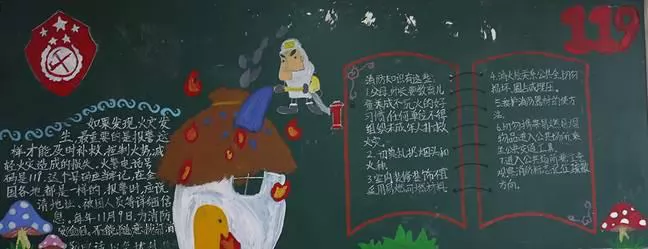 119
如果发现火灾发
生，最重要的是报警这
样才能及时补救，控制火势，减
轻火灾造成的损失。火警电话号
码是119，这个号码应当牢记，在全
国各地都是一样的，报警时，应说
清地址、被困人员等详细信
息。每年11月9日，为消防
安全日。不能随意拨
消防知识有这些：
1.父母、师长要教育儿
童养成不玩火的好
习惯。任何单位不得
组织未成年人扑救
火灾。
2.切莫乱扔烟头和
火种。
3.室内装修装饰
采用易燃可燃材料
4.消火栓关系公共全切勿
损坏、圈占或埋压。
5.爱护消防器材的使方
法。
6.切勿携带易燃易爆
物品进入公共场所乘
坐公共交通工具。
7.进入公共场所要注意
观察消防标志记住疏散
方向。